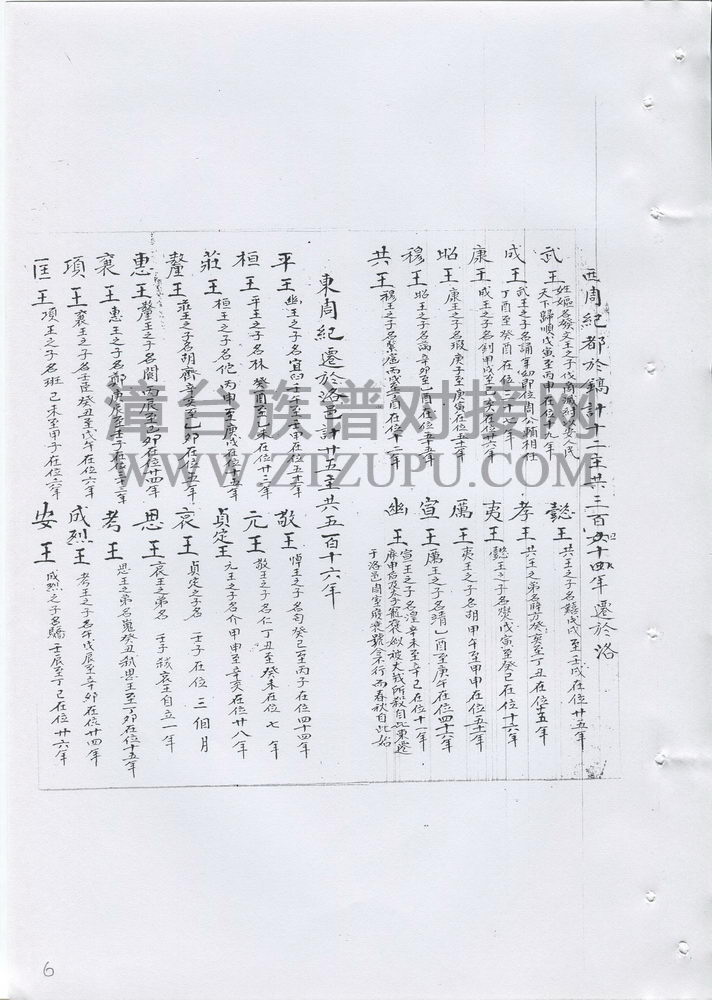 西周紀都於鎬計十二主共三百五十四年遷於洛
武王 姓姬名發文王之子伐商滅紂安人民
天下歸順戊寅至丙申在位十九年
成王 武王之子名誦年幼即位周公輔相
丁酉至癸酉在位三十七年
康王 成王之子名釗甲戌至己亥在位廿六年
昭王 康王之子名瑕庚子至庚寅在位五十一年
穆王 昭王之子名滿辛卯至乙酉在位五十五年
共王 穆王之子名繄扈丙戌至丁酉在位十二年
懿王 共王之子名囏戊戌至壬戌在位廿五年
孝王 共王之弟名辟方癸亥至丁丑在位十五年
夷王 懿王之子名燮戊寅至癸巳在位十六年
厲王 夷王之子名胡甲午至甲申在位五十一年
宣王 厲王之子名靖乙酉至庚午在位四十六年
幽王 宣王之子名湦辛未至辛巳在位十一年
廢申后及太子寵褒姒被犬戎所殺自此東遷
于洛邑周室衰微號令不行而春秋自此始
東周紀遷於洛邑計廿五主共五百十六年
平王 幽王之子名宜臼壬午至壬申在位五十一年
桓王 平王之子名林 癸酉至乙未在位廿三年
莊王 桓王之子名佗 丙申至庚戌在位十五年
釐王 莊王之子名胡齊辛亥至乙卯在位五年
惠王 釐王之子名閬丙辰至己卯在位廿四年
襄王 惠王之子名鄭庚辰至壬子在位三十三年
項王 襄王之子名壬臣癸丑至戊午在位六年
匡王 項王之子名班己未至甲子在位六年
敬王 悼王之子名匄癸己至丙子在位四十四年
元王 敬王之子名仁丁丑至癸未在位 七 年
貞定王 元王之子名介甲申至辛亥在位廿八年
哀王 貞定之子名 壬子在位 三 個月
思王 哀王之弟名 壬子弒哀王自立一年
考王 思王之弟名嵬癸丑弒思王至丁卯在位十五年
威烈王 考王之子名午戊辰至辛卯在位廿四年
安王 威烈之子名驕壬辰至丁巳在位廿六年
漳台族谱对接网
WWW.ZTZUPU.COM
6